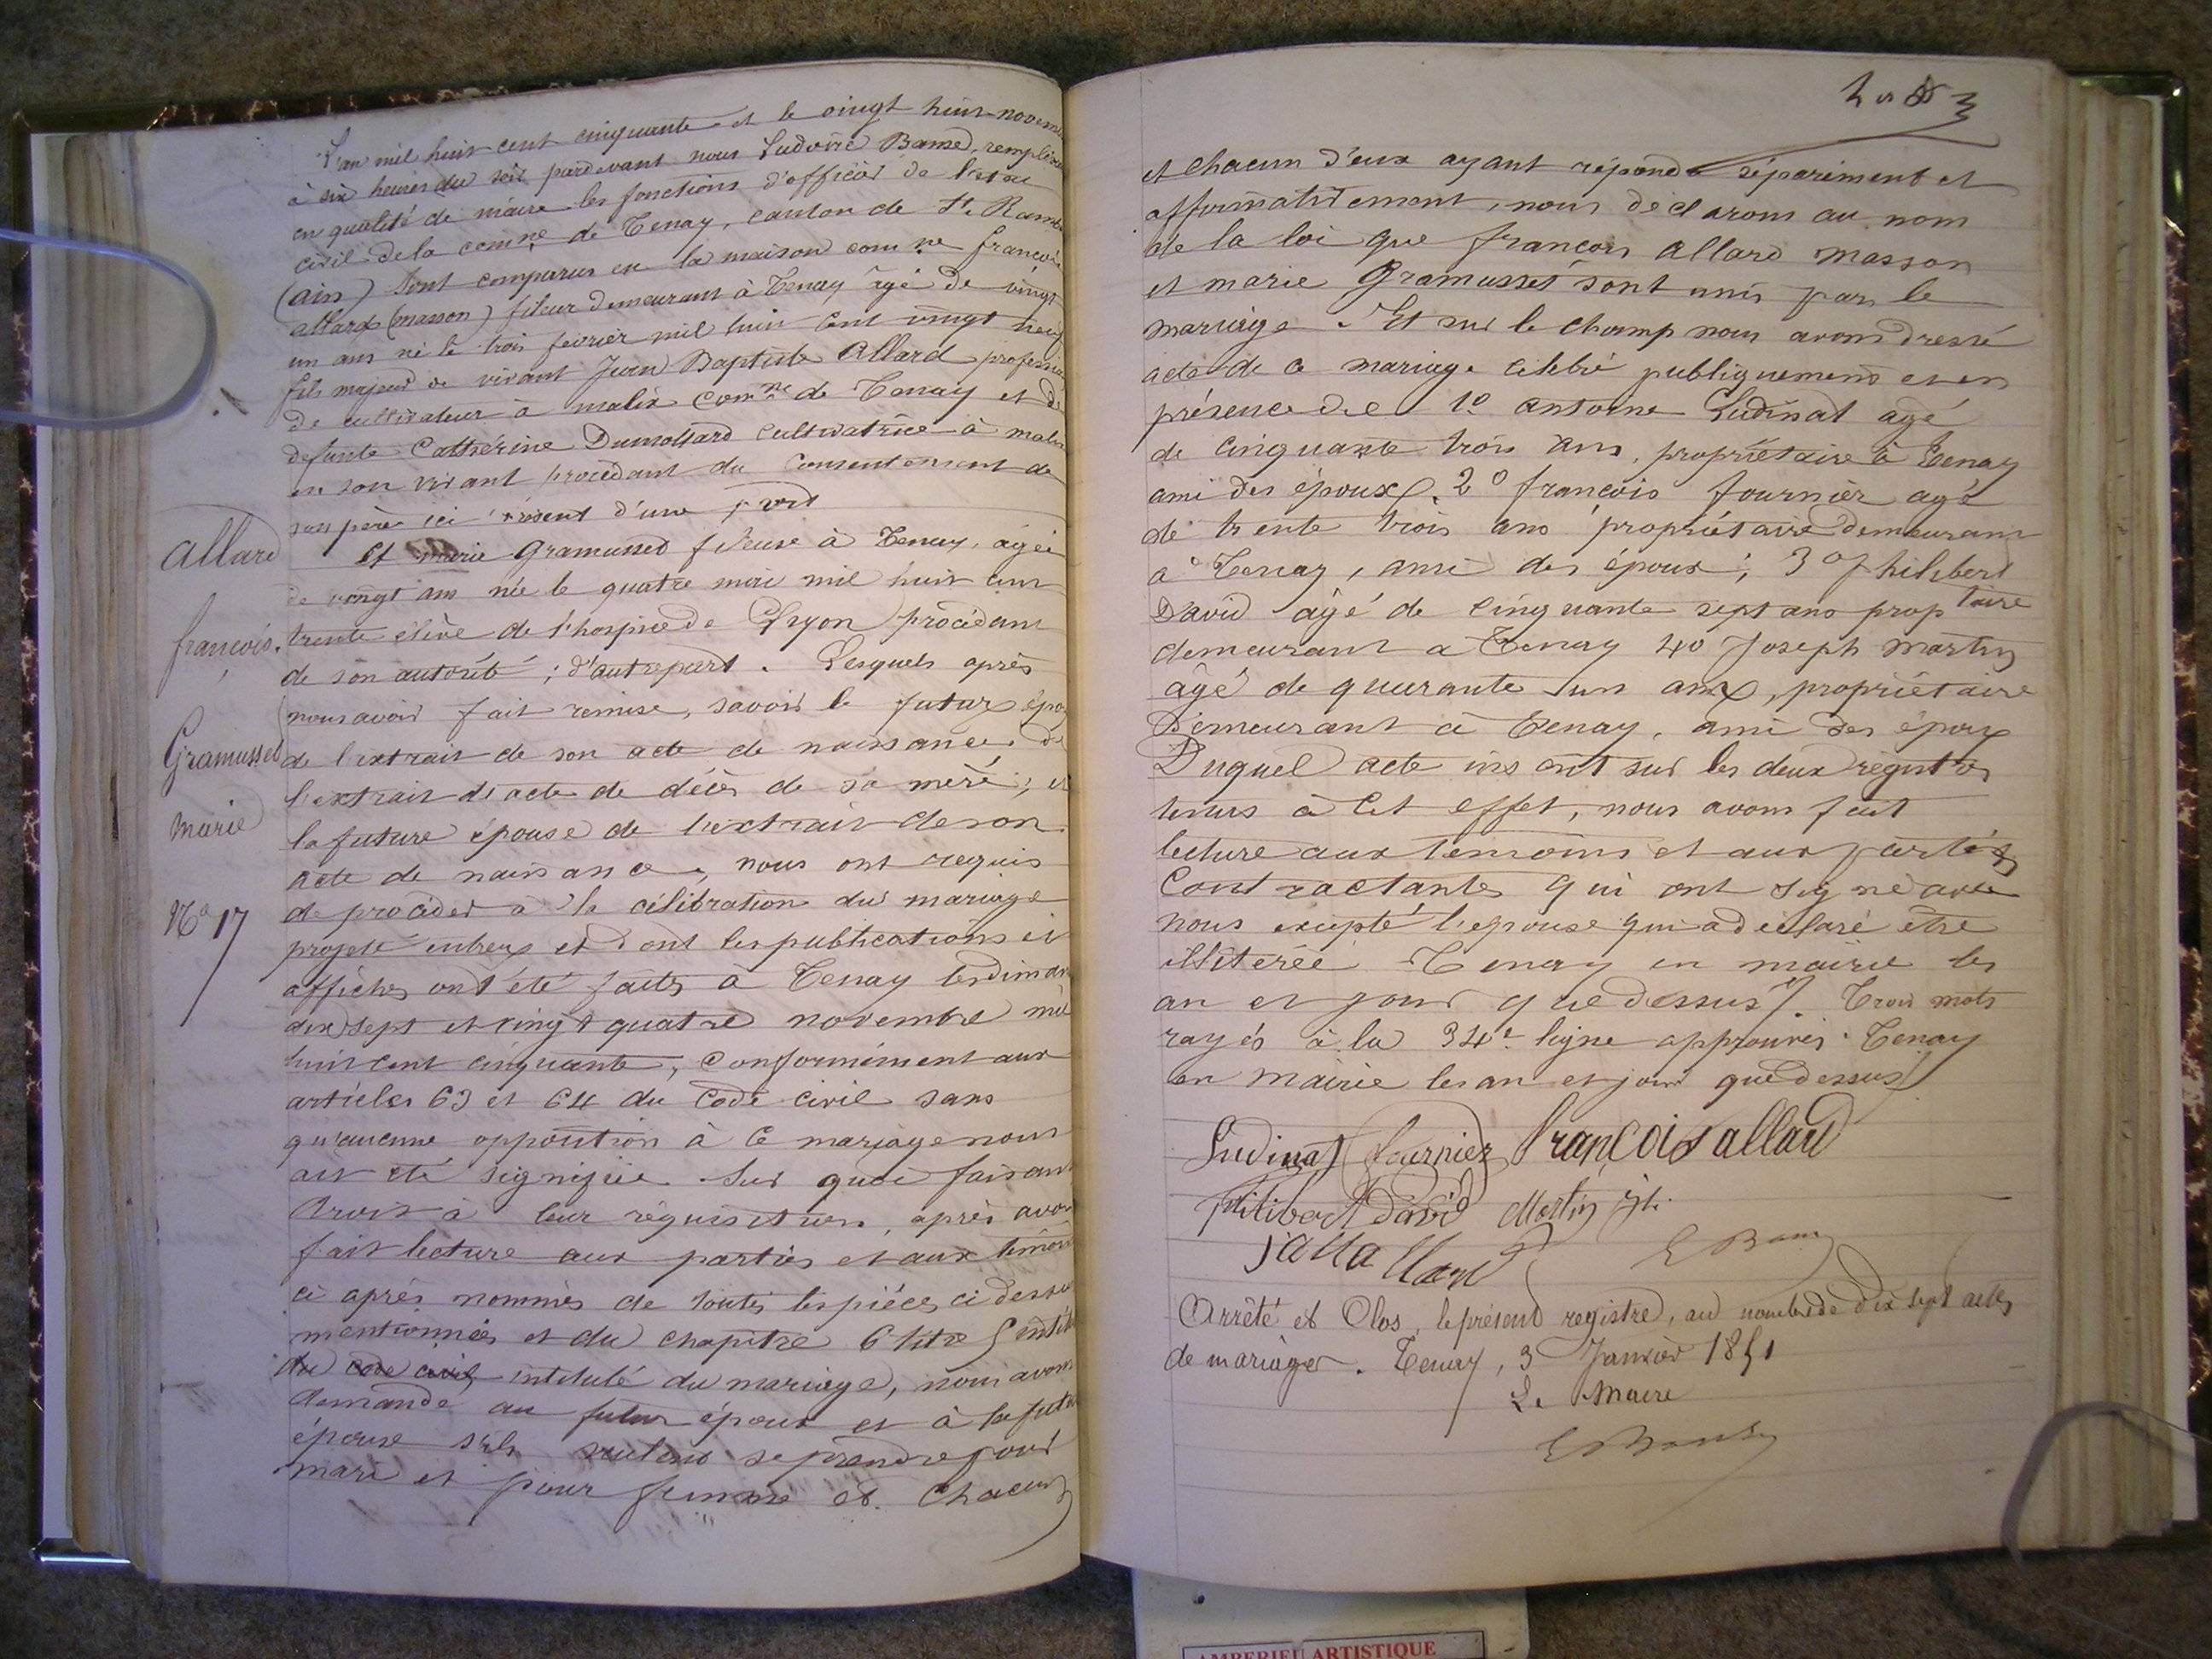 L'an mil huit cent cinquante et le vingt huit novem
à six heures du soir pardevant nous Ludovic Banse, remplis
en qualité de maire les fonctions d'officier de l'etat
civil de la comne de Tenay, canton de St. Ramb
(ain) sont comparus en la maison comne françois
allard (masson) fileur demeurant à Tenay âgé de vingt
un ans né le trois fevrier mil huit cent vingt neuf
fils majeur de vivant Jean Baptiste Allard profession
de cultivateur à malix comne de Tenay et de
defunte Cathérine Dumollard cultivatrice à malix
en son vivant procédant du consentement de
son père ici présent d'une part
Et marie Gramusset fileuse à Tenay, agée
de vingt ans née le quatre mai mil huit cent
trente élève de l'hospice de Lyon procédant
de son autorité ; d'autre part. Lesquels après
nous avoir fait remise, savoir le futur épou
de l'extrait de son acte de naissance, de
l'extrait de acte de décès de sa mère ; et
la future épouse de l'extrait de son
acte de naissance, nous ont requis
de procéder à la célébration du mariage
projeté entreux et dont les publications et
affiches ont été faits à Tenay les diman
dix sept et vingt quatre novembre mil
huit cent cinquante, conformément aux
articles 63 et 64 du code civil sans
qu'aucune opposition à ce mariage nous
ait été signifiée. Sur quoi faisant
droit à leur réquisition, après avoir
fait lecture aux parties et aux témoins
ci après nommés de toutes les pièces ci dessus
mentionnées et du chapitre 6 titre 5 intit
du code civil intitulé du mariage, nous avons
demandé au futur époux et à la future
épouse s'ils veulent se prendre pour
mari et pour femme et. Chacun
Allard
françois.
Gramusset
Marie
No 17
et chacun d'eux ayant répondu séparément et
affirmativement, nous déclarons au nom
de la loi que françois allard masson
et marie Gramusset sont unis par le
mariage. Et sur le champ nous avons dressé
acte de ce mariage célébré publiquement et en
présence de 1o antoine Ludinat agé
de cinquante trois ans, propriétaire à Tenay
ami des époux. 2o françois fournier agé
de trente trois ans propriétaire demeurant
a Tenay, ami des époux ; 3o philibert
David âgé de cinquante sept ans proptaire
demeurant a Tenay 4o Joseph martin
âgé de quarante un ans, propriétaire
Demeurant à Tenay, ami des époux
Duquel acte inscrit sur les deux régistres
tenus à cet effet, nous avons fait
lecture aux temoins et aux parties
Contractantes qui ont signé avec
nous excepté l'epouse qui a déclaré être
illitérée Tenay en mairie les
an et jour que dessus. Trois mots
rayés à la 34e ligne approuvés. Tenay
en mairie les an et jour que dessus
Ludinat fournier françois allard
philibert David Martin
allard
Arrêté et Clos, le présent registre, au nombre de dix sept actes
de mariage. Tenay, 3 Janvier 1851
Le Maire
AMBERIEU ARTISTIQUE